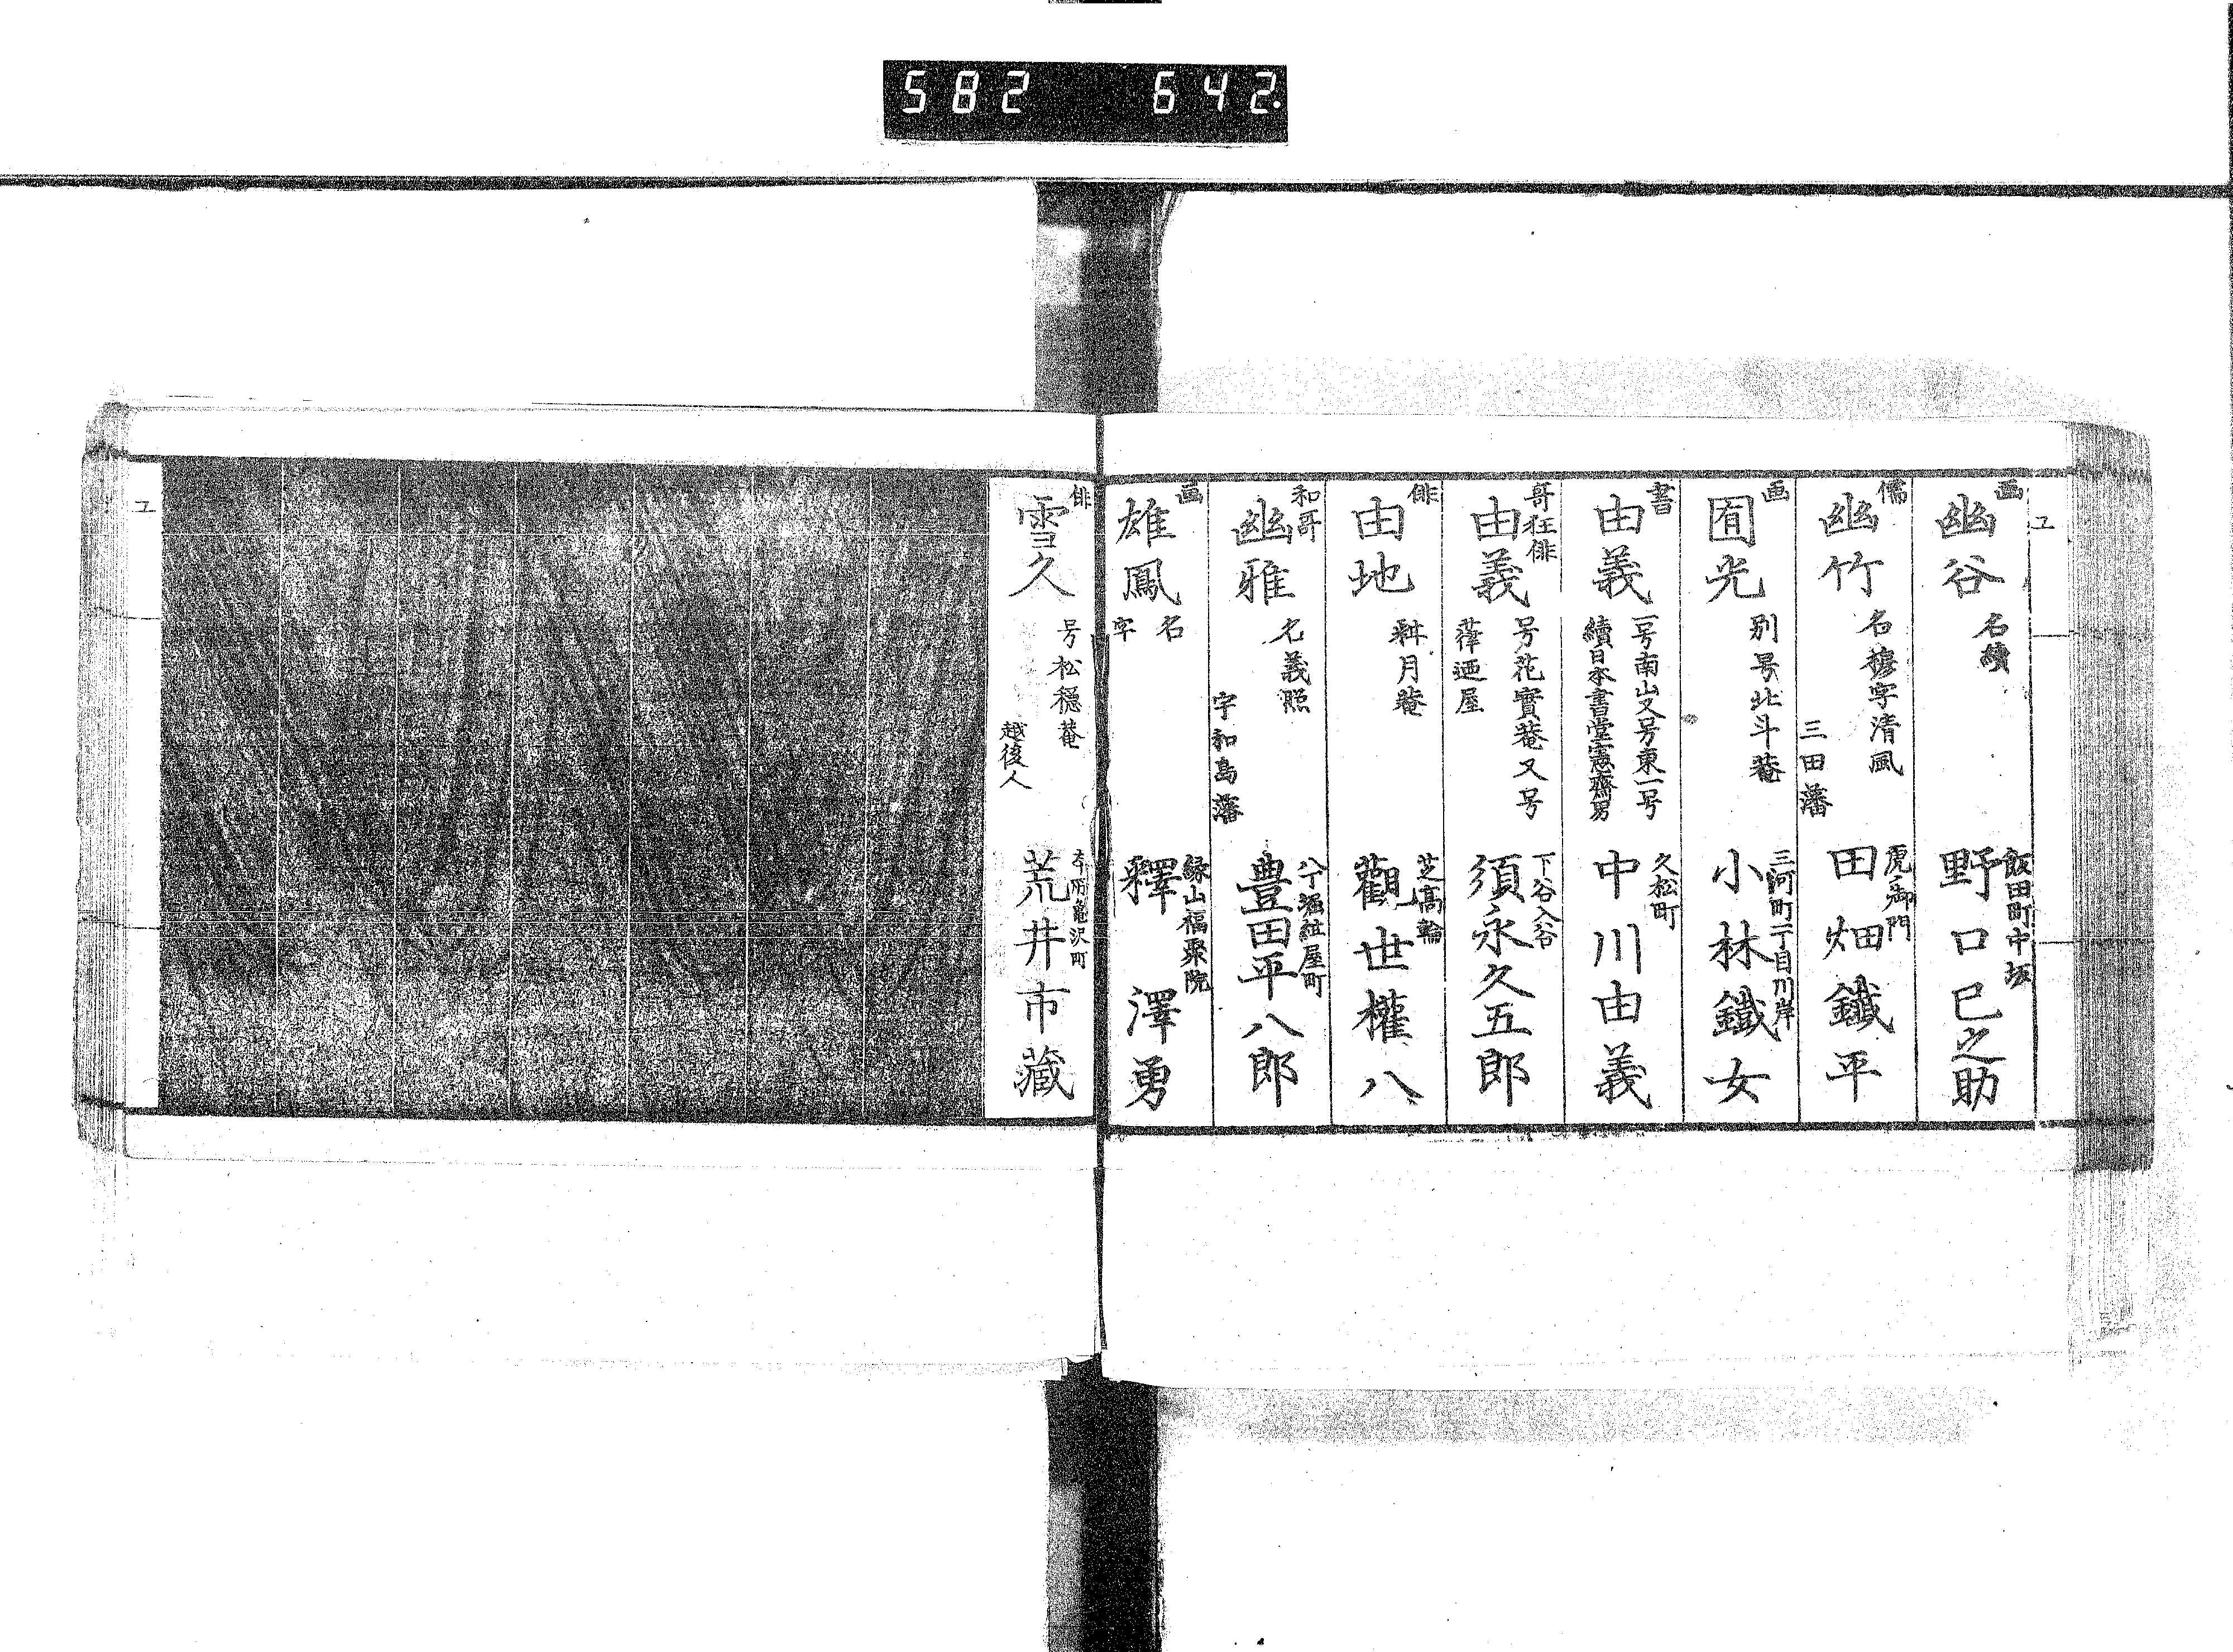 582 642
ユ
画
幽谷
名績
飯田町中坂
野口巳之助
儒
幽竹
名椿字清風
三田藩
虎御門
田畑鐵平
画
囿光
別号北斗菴
三河町一丁目川岸
小林鐵女
書
由義
一号南山又号東一号
續日本書堂憲齋男
久松町
中川由義
哥狂俳
由義
号花實菴又号
葎廼屋
下谷入谷
須永久五郎
俳
由地
斛月菴
芝高輪
觀世權八
和哥
幽雅
名義照
宇和島藩
八丁堀紺屋町
豊田平八郎
画
雄鳳
名
字
緑山福聚院
釋澤勇
俳
雪久
号松穏菴
越後人
本所亀沢町
荒井市藏
ユ